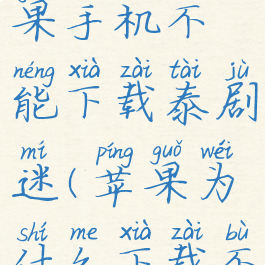 果手机不
néng xià zài tài jù
能下载泰剧
mí píng guǒ wéi
迷(苹果为
shí me xià zài bù
什么下载不